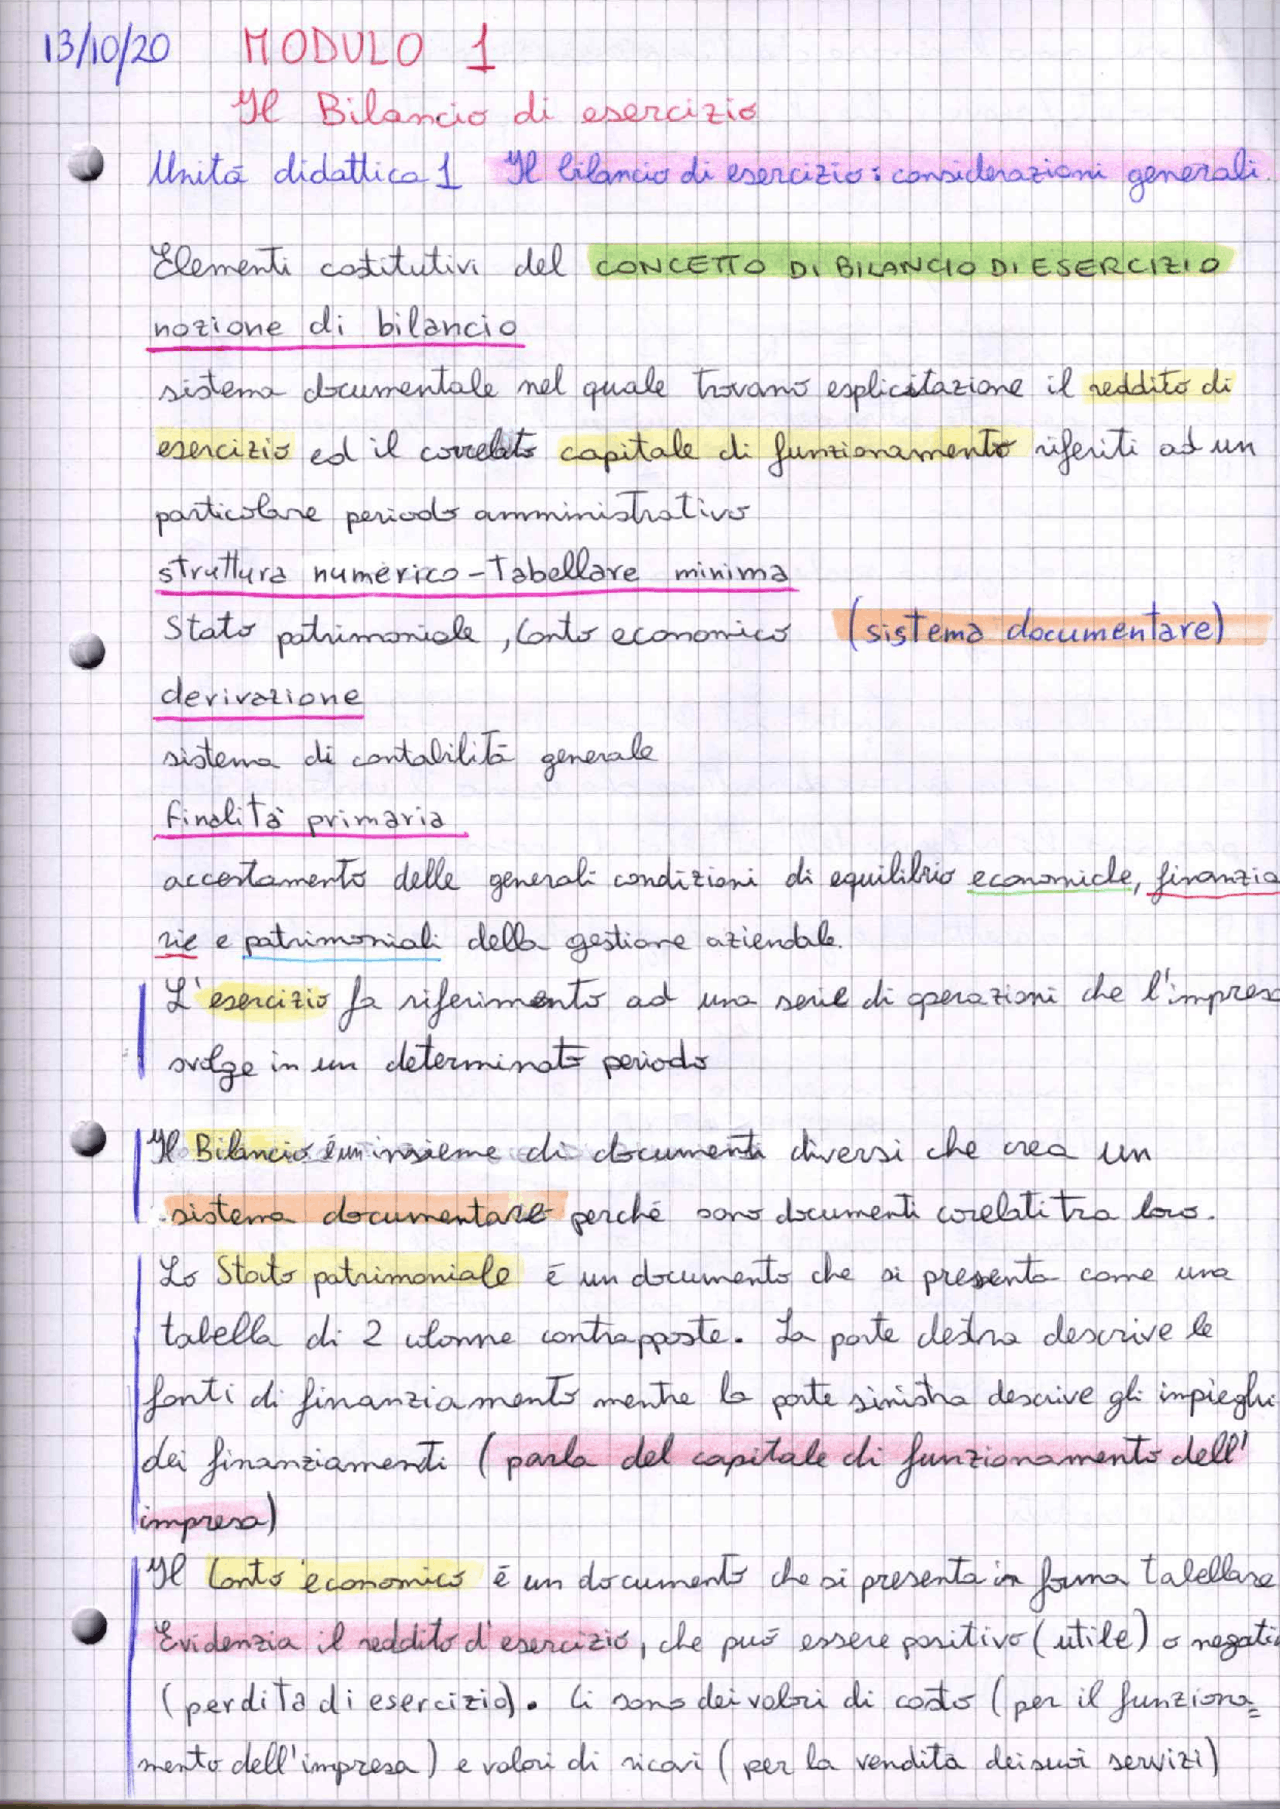 13/10/20 MODULO 1
Il Bilancio di esercizio
Unità didattica 1 Il bilancio di esercizio: considerazioni generali.
Elementi costitutivi del CONCETTO DI BILANCIO DI ESERCIZIO
nozione di bilancio
sistema documentale nel quale trovano esplicitazione il reddito di
esercizio ed il correlato capitale di funzionamento riferiti ad un
particolare periodo amministrativo
struttura numerico-Tabellare minima
Stato patrimoniale, Conto economico (sistema documentare)
derivazione
sistema di contabilità generale
finalità primaria
accertamento delle generali condizioni di equilibrio economiche, finanzia
rie e patrimoniali della gestione aziendale.
L'esercizio fa riferimento ad una serie di operazioni che l'impresa
svolge in un determinato periodo
Il Bilancio è un insieme di documenti diversi che crea un
sistema documentare perché sono documenti corelati tra loro.
Lo Stato patrimoniale è un documento che si presenta come una
tabella di 2 colonne contrapposte. La parte destra descrive le
fonti di finanziamento mentre la parte sinistra descrive gli impieghi
dei finanziamenti (parla del capitale di funzionamento dell'
impresa)
Il Conto economico è un documento che si presenta in forma tabellare
Evidenzia il reddito d'esercizio, che può essere positivo (utile) o negativ
(perdita di esercizio). Ci sono dei valori di costo (per il funziona=
mento dell'impresa) e valori di ricavi (per la vendita dei suoi servizi)